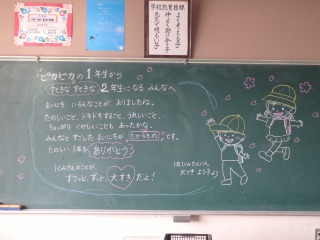 学校教育目標
よく考える子
仲よく助け合う子
元気で明るい子
ピカピカの1年生から
すてきな すてきな 2年生になる みんなへ
まいにち いろんなことが ありましたね。
たのしいこと、ドキドキすること、うれしいこと、
ちょっぴり くやしいことも あったかな。
みんなと すごした まいにちが たからもの です。
たのしい 1年を ありがとう
1くみさんのことが
ずうっと、ずっと 大すき だよ!
1の1 たんにん